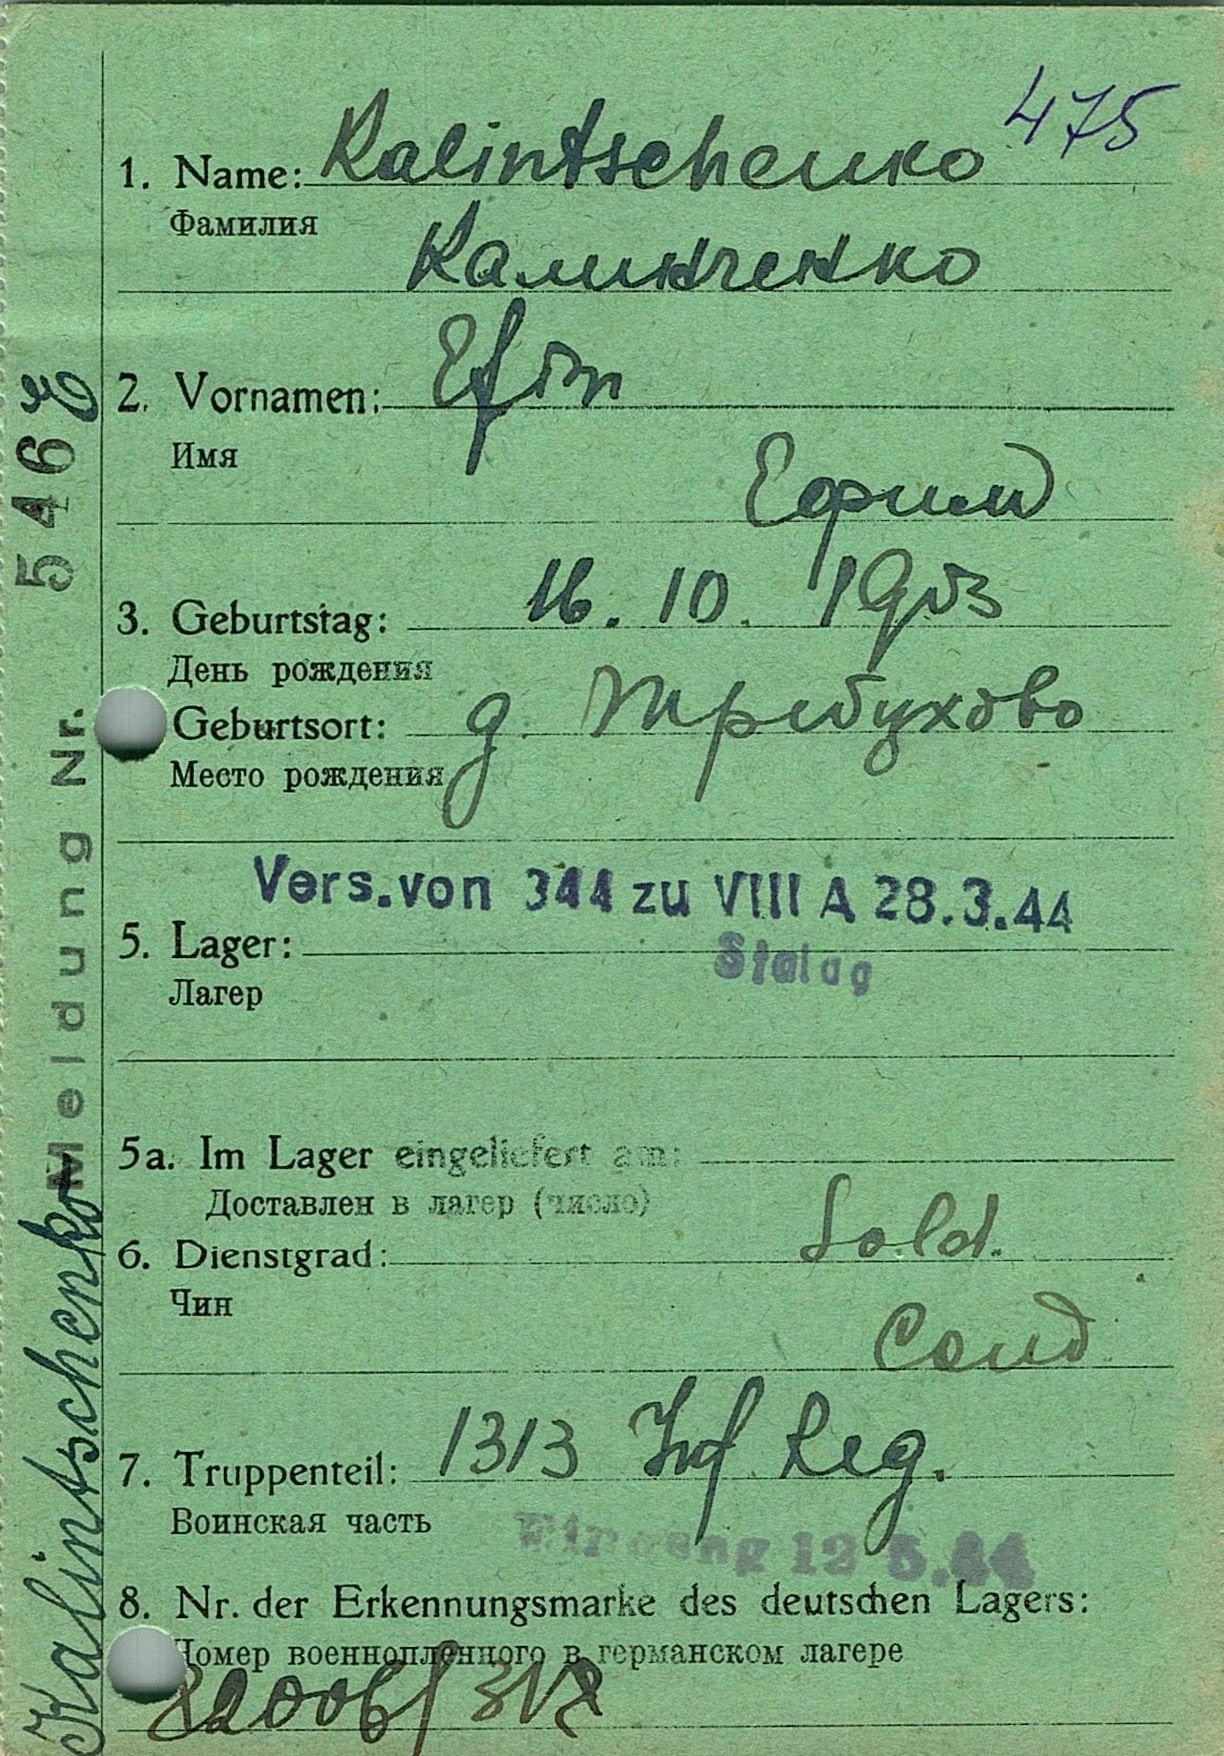 475
1. Name: Kalintschenko
Фамилия
Калинченко
2. Vornamen: Efim
Имя
Ефим
3. Geburtstag: 16. 10. 1903
День рождения
Geburtsort: д. Требухово
Место рождения
Vers.von 344 zu VIII A 28.3.44
5. Lager: Stalag
Лагер
5a. Im Lager eingeliefert am:
Доставлен в лагер (число)
6. Dienstgrad: Sold.
Чин
Солд
7. Truppenteil: 1313 Inf Reg.
Воинская часть
Eingang 12 5.44
8. Nr. der Erkennungsmarke des deutschen Lagers:
Номер военнопленного в германском лагере
Kalintschenko Meldung Nr. 546